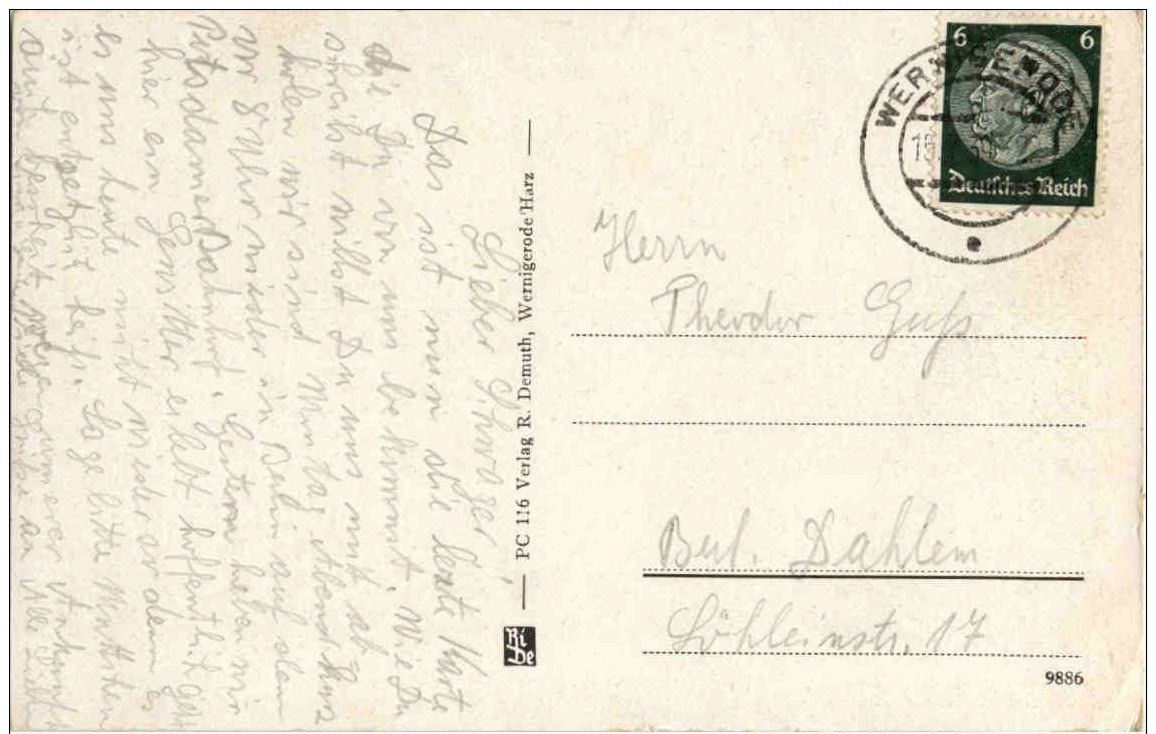 Lieber Schwager!
Das ist nun die letzte Karte
die Du von uns bekommst. Wie Du
schreibst willst Du uns mit ab-
holen wir sind Montag Abend kurz
vor 8 Uhr wieder in Berlin auf dem
Potsdamer Bahnhof. Gestern haben wir
hier ein Gewitter erlebt hoffentlich
es uns heute nicht wieder an dem es
ist Sage bitte Muttchen
Grüße an Alle
PC 116 Verlag R. Demuth, Wernigerode/Harz
Ri
De
6 6
Deutsches Reich
WERNIGERODE
Herrn
Theodor
Berl. Dahlem
Löhleinstr. 17
9886